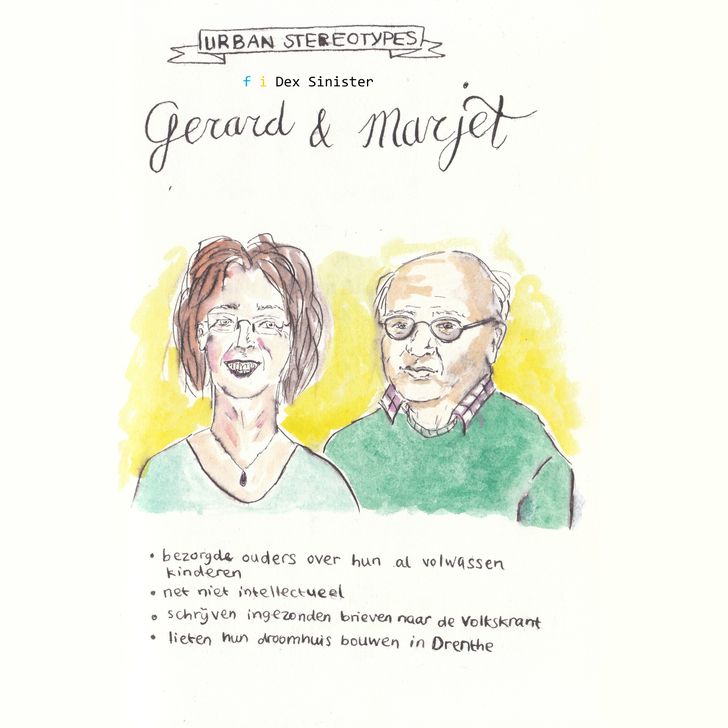 URBAN STEREOTYPES
f i Dex Sinister
Gerard & Marjet
• bezorgde ouders over hun al volwassen
kinderen
• net niet intellectueel
• schrijven ingezonden brieven naar de Volkskrant
• lieten hun droomhuis bouwen in Drenthe